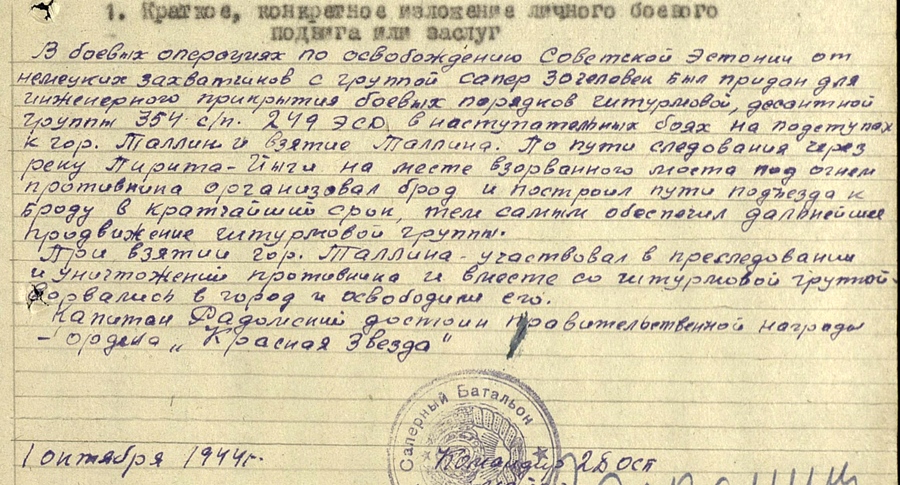 1. Краткое, конкретное изложение личного боевого
подвига или заслуг
В боевых операциях по освобождению Советской Эстонии от
немецких захватчиков с группой сапер 30 человек был придан для
инженерного прикрытия боевых порядков штурмовой, десантной
группы 354 с/п. 249 ЭСД, в наступательных боях на подступах
к гор. Таллин и взятие Таллина. По пути следования через
реку Пирита-Йыги на месте взорванного моста под огнем
противника организовал брод и построил пути подъезда к
броду в кратчайший срок, тем самым обеспечил дальнейшие
продвижение штурмовой группы.
При взятии гор. Таллина - участвовал в преследовании
и уничтожений противника и вместе со штурмовой группой
ворвались в город и освободили его.
Капитан Радомский достоин правительственной награды
- ордена „Красная Звезда"
Саперный Батальон
1 октября 1944 г.
Командир